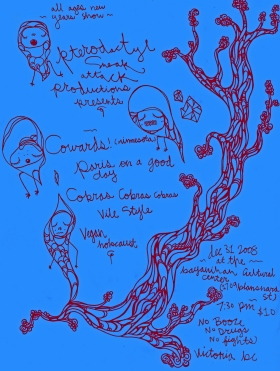 all ages new
~ years show ~
pterodactyl
sneak
attack
productions
presents
Cowards! (minnesota)
Paris on a good
day
Cobras Cobras Cobras
Vile Style
Vegan
holocaust
~ dec 31 2008
~ at the ~
cultural
center
st)
7:30 pm
$10
No Booze
No Drugs
No fights
Victoria bc